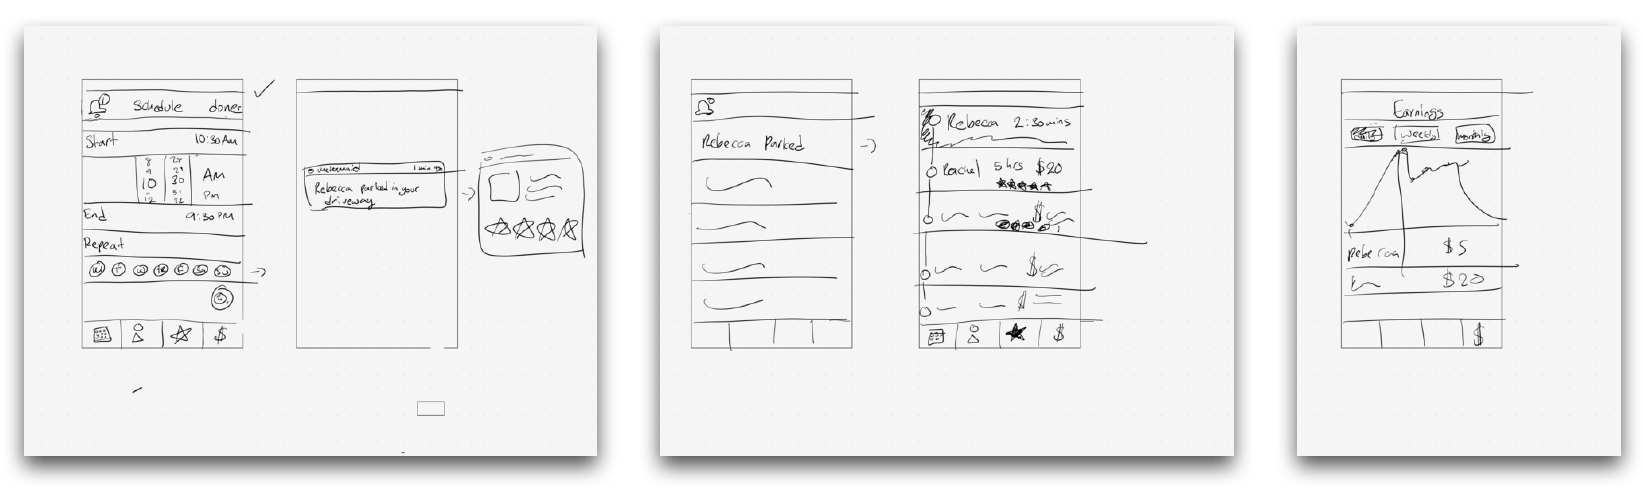 1
Schedule done
Start 10:30 AM
8 28
9 29
10 30 AM
PM
12 32
End 9:30 PM
Repeat
M T W TR F Sa Su
$
1 min
Rebecca parked in your
driveway
Rebecca Parked
Rebecca 2:30 mins
Rachel 5 hrs $20
$
$
$
$
Earnings
weekly monthly
Rebecca $5
$20
$